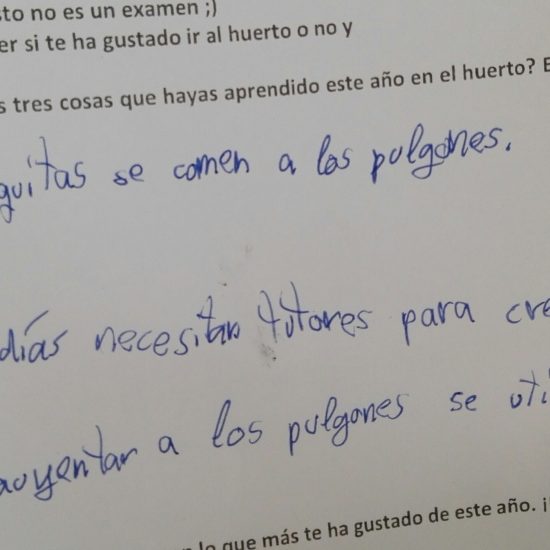 sto no es un examen ;)
er si te ha gustado ir al huerto o no y
s tres cosas que hayas aprendido este año en el huerto? E
guitas se comen a los pulgones.
días necesitan tutores para cre
auyentar a los pulgones se uti
lo que más te ha gustado de este año. ¡